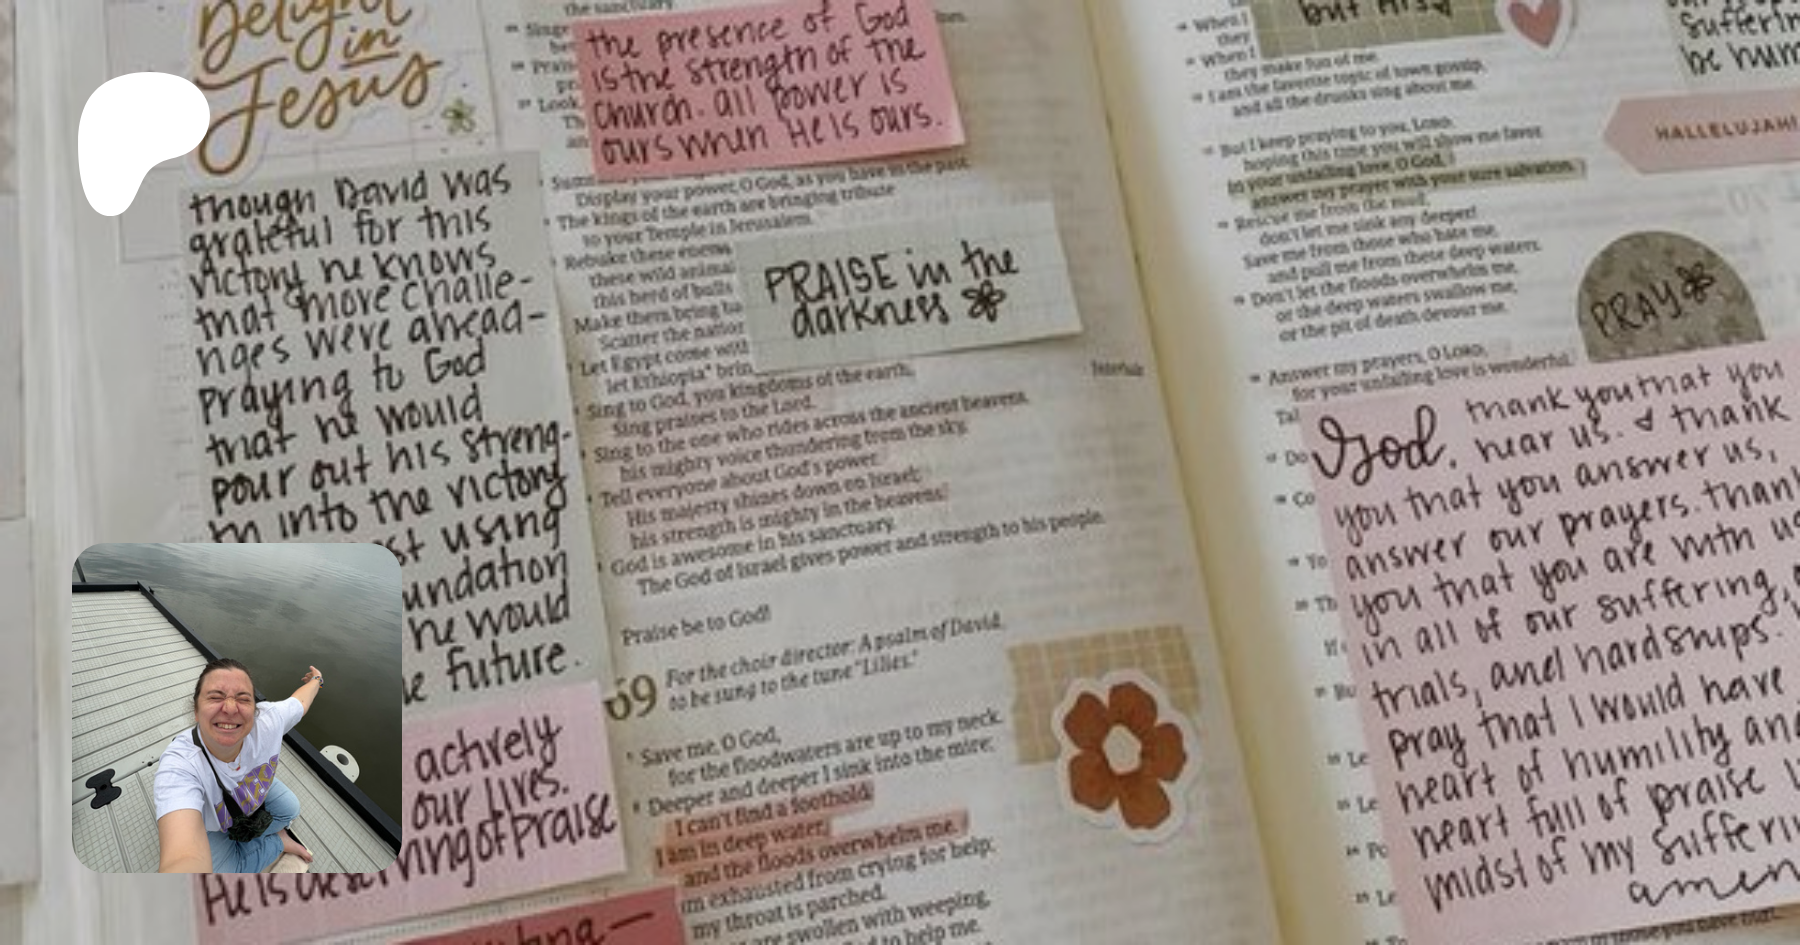 Delight
in
Jesus
though David was
grateful for this
victory he knows
that more challe-
nges were ahead-
praying to God
that he would
pour out his streng-
th into the victory
st using
undation
he would
e future.
actively
our lives.
ning of praise
He is
the sanctuary.
the presence of God
is the strength of the
church. all power is
ours when He is ours.
Display your power, O God, as you have in the past.
The kings of the earth are bringing tribute
to your Temple in Jerusalem.
Rebuke these enemi
these wild animal
this herd of bulls
Make them bring ba
Scatter the nation
Let Egypt come with
let Ethiopia* brin
PRAISE in the
darkness
Sing to God, you kingdoms of the earth.
Sing praises to the Lord.
Sing to the one who rides across the ancient heavens,
his mighty voice thundering from the sky.
Tell everyone about God's power.
His majesty shines down on Israel;
his strength is mighty in the heavens.
God is awesome in his sanctuary.
The God of Israel gives power and strength to his people.
Praise be to God!
69
For the choir director: A psalm of David,
to be sung to the tune "Lilies."
Save me, O God,
for the floodwaters are up to my neck.
Deeper and deeper I sink into the mire;
I can't find a foothold.
I am in deep water,
and the floods overwhelm me.
I'm exhausted from crying for help;
my throat is parched.
are swollen with weeping,
to help me.
but His
When I
they
When I
they make fun of me.
I am the favorite topic of town gossip,
and all the drunks sing about me.
But I keep praying to you, LORD,
hoping this time you will show me favor.
In your unfailing love, O God,
answer my prayer with your sure salvation.
Rescue me from the mud;
don't let me sink any deeper!
Save me from those who hate me,
and pull me from these deep waters.
Don't let the floods overwhelm me,
or the deep waters swallow me,
or the pit of death devour me.
Answer my prayers, O LORD,
for your unfailing love is wonderful.
suffering
be hum
HALLELUJAH!
PRAY
God, thank you that you
hear us. & thank
you that you answer us,
answer our prayers. thank
you that you are with us
in all of our suffering,
trials, and hardships.
pray that I would have
heart of humility and
heart full of praise
midst of my suffering
amen